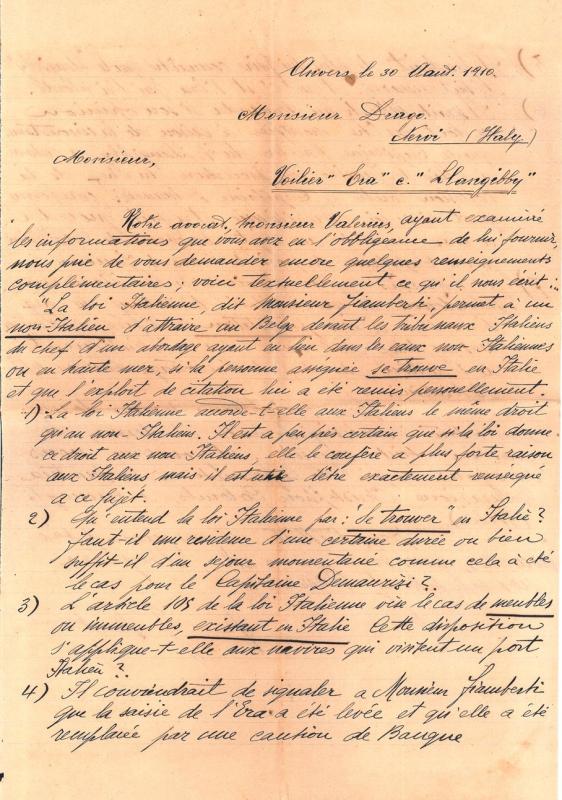 Anvers, le 30 Aout. 1910.
Monsieur Drago.
Nervi (Italy)
Monsieur,
Voilier "Era" c. "Llangibby"
Notre avocat, Monsieur Valerius, ayant examiné
les informations que vous avez eu l'obligeance de lui fournir,
nous prie de vous demander encore quelques renseignements
complémentaires; voici textuellement ce qu'il nous écrit:
"La loi Italienne, dit Monsieur Giamberti, permet à un
non-Italien d'attraire un Belge devant les tribunaux Italiens
du chef d'un abordage ayant eu lieu dans les eaux non Italiennes
ou en haute mer, si la personne assignée se trouve en Italie
et que l'exploit de citation lui a été remis personellement.
1) La loi Italienne accorde-t-elle aux Italiens le même droit
qu'au non-Italiens. Il est a peu près certain que si la loi donne
ce droit aux non Italiens, elle le confère a plus forte raison
aux Italiens mais il est utile d'être exactement renseigné
a ce sujet.
2) Qu'entend la loi Italienne par: "se trouver" en Italie?
Faut-il une residence d'une certaine durée ou bien
suffit-il d'un sejour momentané comme cela a été
le cas pour le Capitaine Demaurizi?
3) L'article 105 de la loi Italienne vise le cas de meubles
ou immeubles, existant en Italie Cette disposition
s'applique-t-elle aux navires qui visitent un port
Italien?
4) Il conviendrait de signaler a Monsieur Giamberti
que la saisie de l'Era a été levée et qu'elle a été
remplacée par une caution de Banque